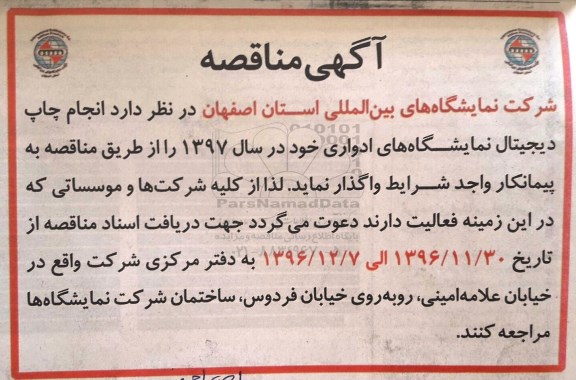 آگهی مناقصه
شرکت نمایشگاه‌های بین‌المللی استان اصفهان در نظر دارد انجام چاپ
دیجیتال نمایشگاه‌های ادواری خود در سال ۱۳۹۷ را از طریق مناقصه به
پیمانکار واجد شرایط واگذار نماید. لذا از کلیه شرکت‌ها و موسساتی که
ParsNamadData
در این زمینه فعالیت دارند دعوت می‌گردد جهت دریافت اسناد مناقصه از
تاریخ ۱۳۹۶/۱۱/۳۰ الی ۱۳۹۶/۱۲/۷ به دفتر مرکزی شرکت واقع در
خیابان علامه‌امینی، روبه‌روی خیابان فردوس، ساختمان شرکت نمایشگاه‌ها
مراجعه کنند.